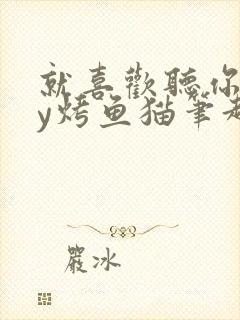 就喜歡聽你
y烤鱼猫笔趣
嚴冰